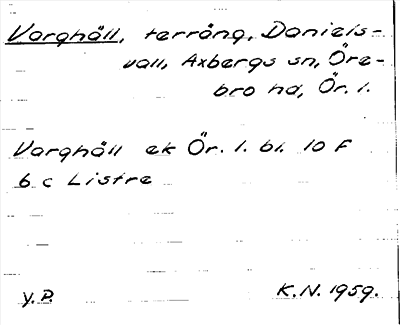 Varghäll, terräng, Daniels-
vall, Axbergs sn, Öre-
bro hd, Ör. l.
Varghäll ek Ör. l. bl. 10 F
6 c Listre
y.P. K.N. 1959.